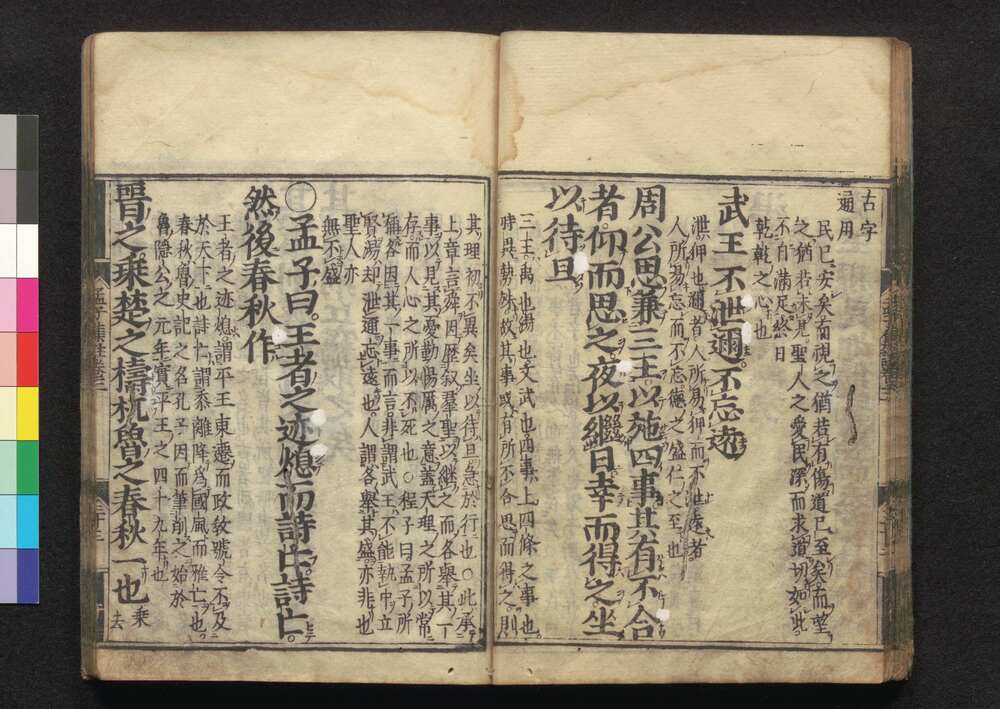 古字
通用
民已安矣而視之猶若有傷道已至矣而望
之猶若未見聖人之愛民深而求道切如此
不自滿足終日
乾乾之心也
武王不泄邇不忘遠
泄狎也邇者人所易狎而不泄遠者
人所易忘而不忘德之盛仁之至也
周公思兼三王以施四事其有不合
者仰而思之夜以繼日幸而得之坐
以待旦
三王禹也湯也文武也四事上四條之事也
時異勢殊故其事或有所不合思而得之則
其理初不異矣坐以待旦急於行也○此承
上章言舜因歷叙羣聖以繼之而各舉其一
事以見其憂勤惕厲之意蓋天理之所以常
存而人心之所以不死也○程子曰孟子所
稱各因其一事而言非謂武王不能執中立
賢湯却泄邇忘遠也人謂各舉其盛亦非也
聖人亦
無不盛
○孟子曰王者之迹熄而詩亡詩亡
然後春秋作
王者之迹熄謂平王東遷而政教號令不及
於天下也詩亡謂黍離降爲國風而雅亡也
春秋魯史記之名孔子因而筆削之始於
魯隱公之元年實平王之四十九年也
晋之乘楚之檮杌魯之春秋一也
乘
去